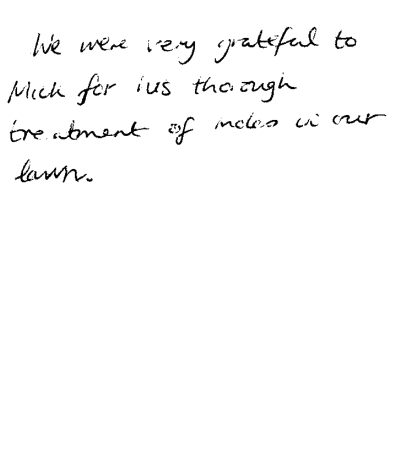 We were very grateful to
Mick for his thorough
treatment of moles in our
lawn.